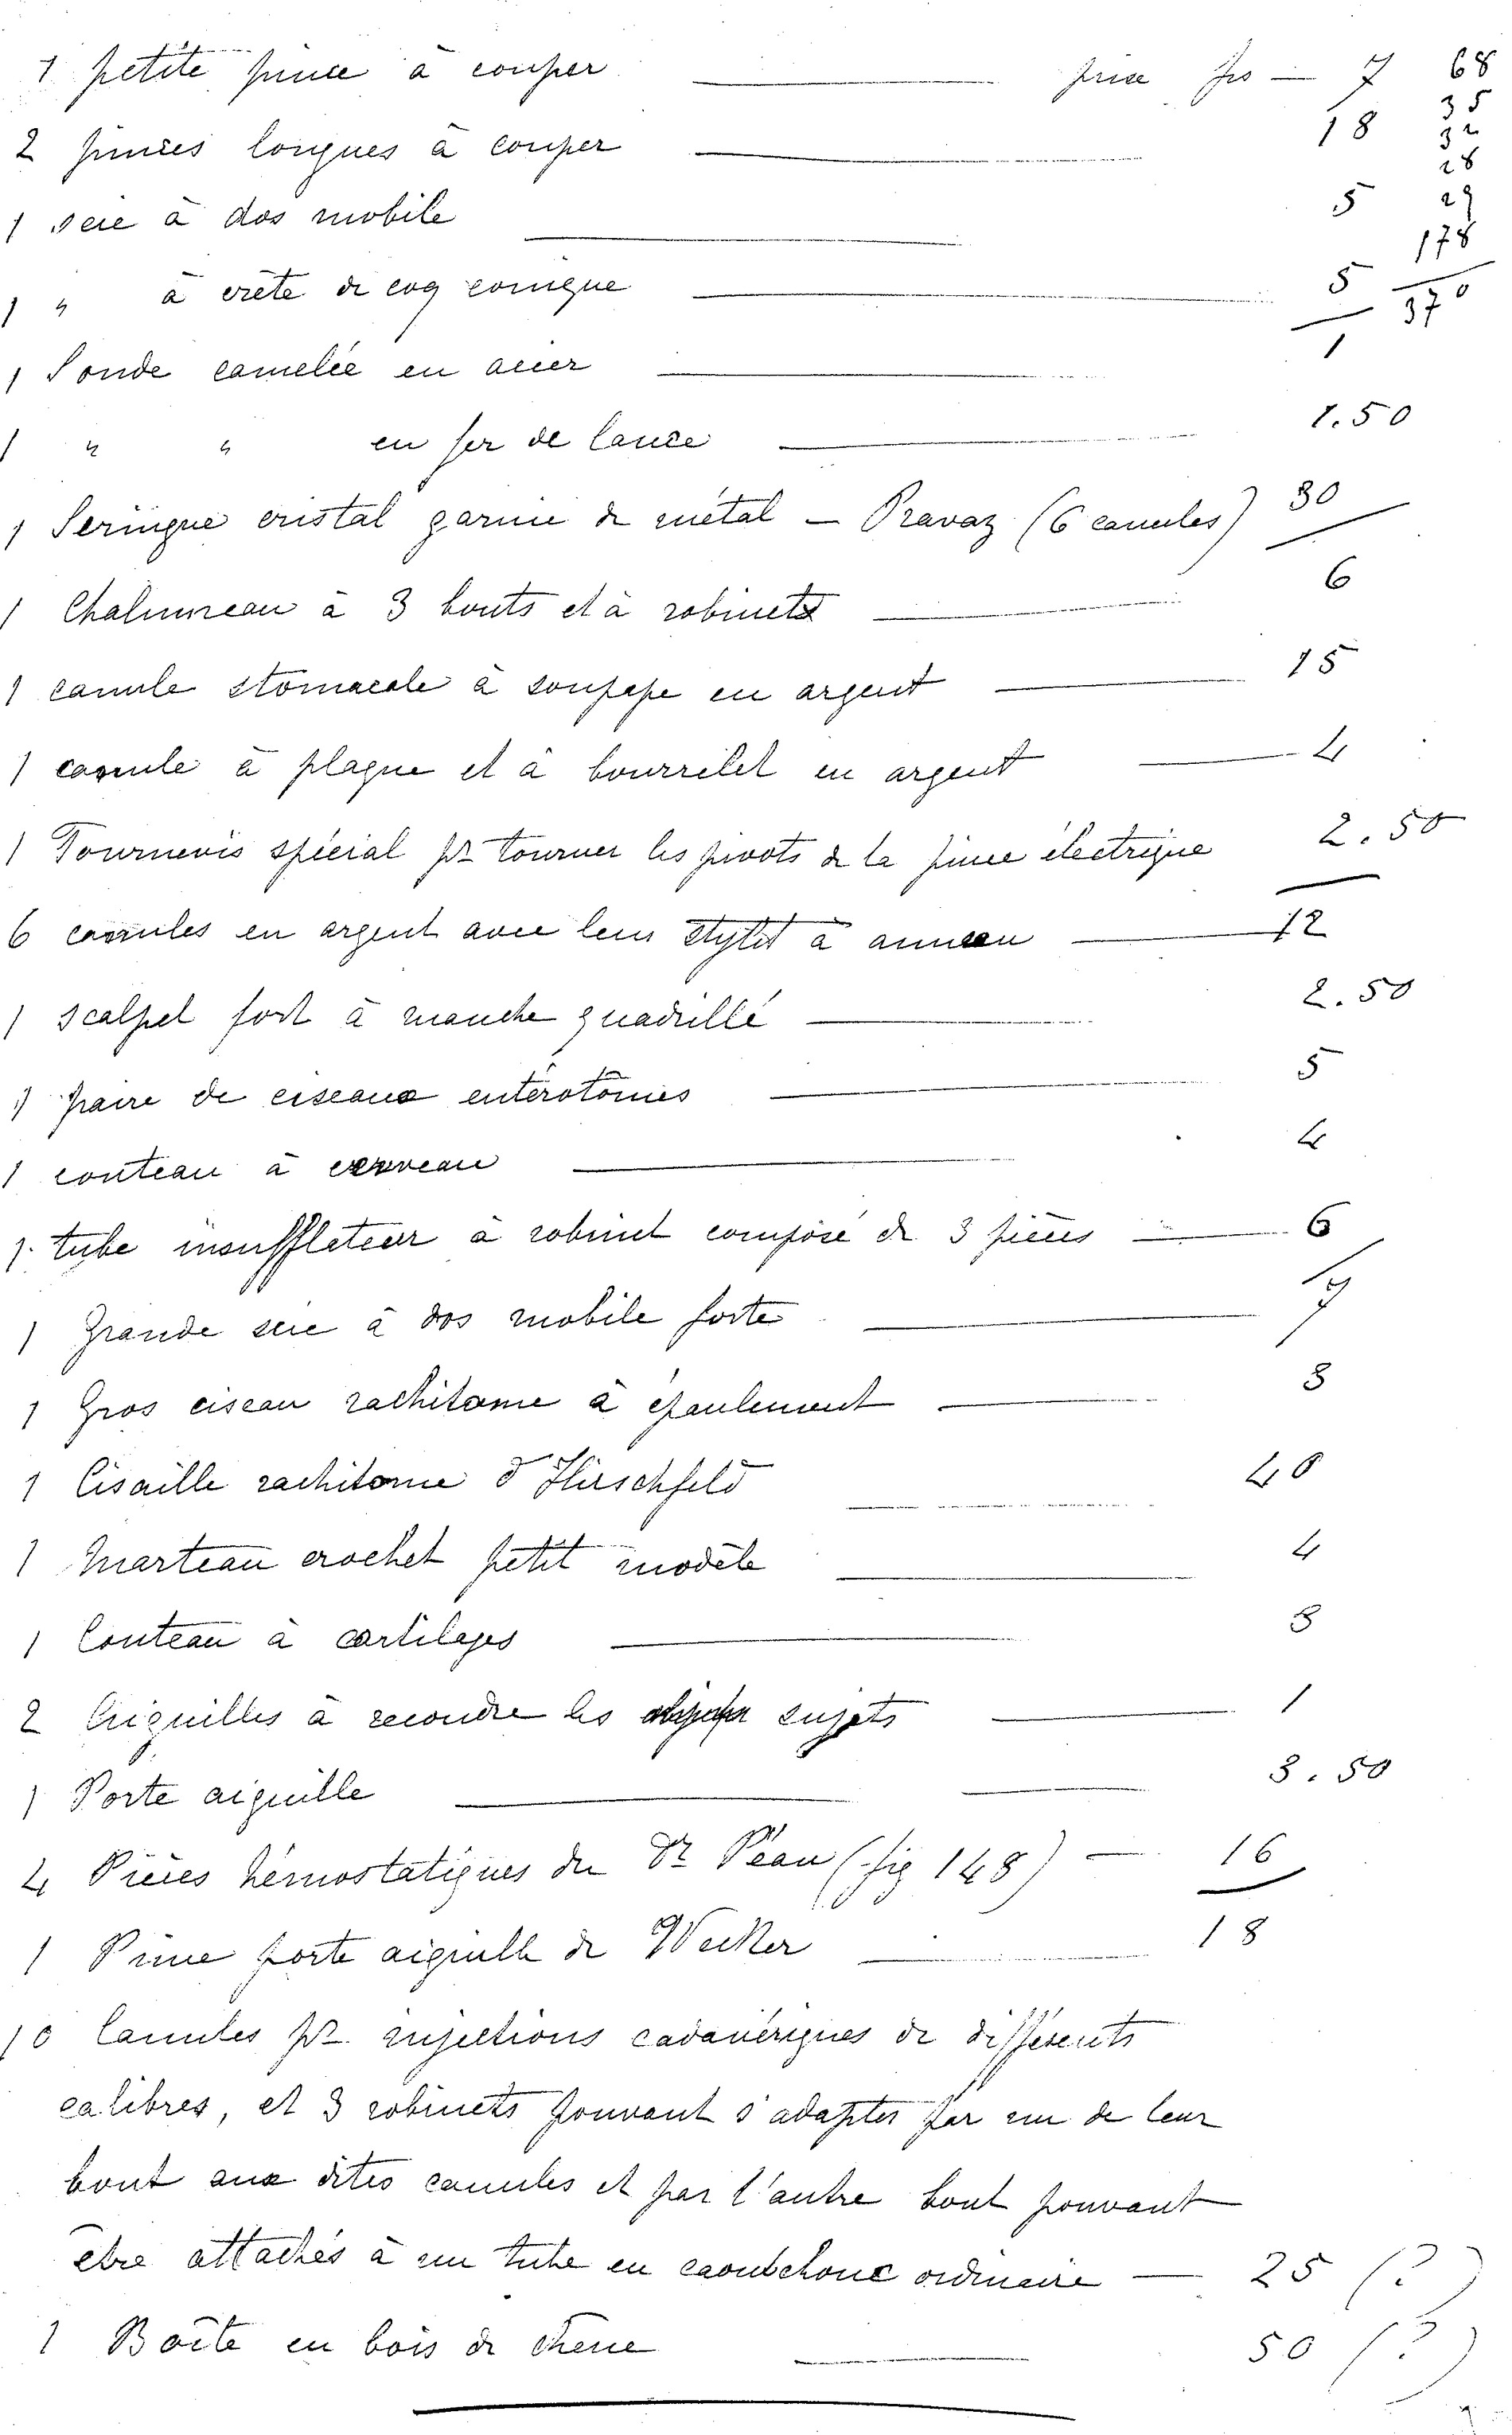 1 petite pince à couper prix frs — 7
68
35
2 pinces longues à couper 18
32
28
1 scie à dos mobile 5
29
178
1 " à crête de coq conique 5
370
1 Sonde canelée en acier 1
1 " " en fer de lance 1.50
1 Seringue cristal garnie de métal — Pravaz (6 canules) 30
1 Chalumeau à 3 bouts et à robinets 6
1 canule stomacale à soupape en argent 15
1 canule à plaque et à bourrelet en argent 4
1 Tournevis spécial pr tourner les pivots de la pince électrique 2.50
6 canules en argent avec leur stylet à anneau 12
1 scalpel fort à manche quadrillé 2.50
1 paire de ciseaux entérotomes 5
1 couteau à cerveau 4
1 tube insufflateur à robinet composé de 3 pièces 6
1 Grande scie à dos mobile forte 7
1 Gros ciseau rachitome à épaulement 3
1 Cisaille rachitome d'Hirschfeld 40
1 Marteau crochet petit modèle 4
1 Couteau à cartilages 3
2 Aiguilles à recoudre les sujets 1
1 Porte aiguille 3.50
4 Pinces hémostatiques du Dr Péan (fig 148) — 16
1 Pince porte aiguille de Wecker 18
10 Canules pr injections cadavériques de différents
calibres, et 3 robinets pouvant s'adapter par un de leur
bout aux dites canules et par l'autre bout pouvant
être attachés à un tube en caoutchouc ordinaire — 25 (?)
1 Boîte en bois de chêne 50 (?)